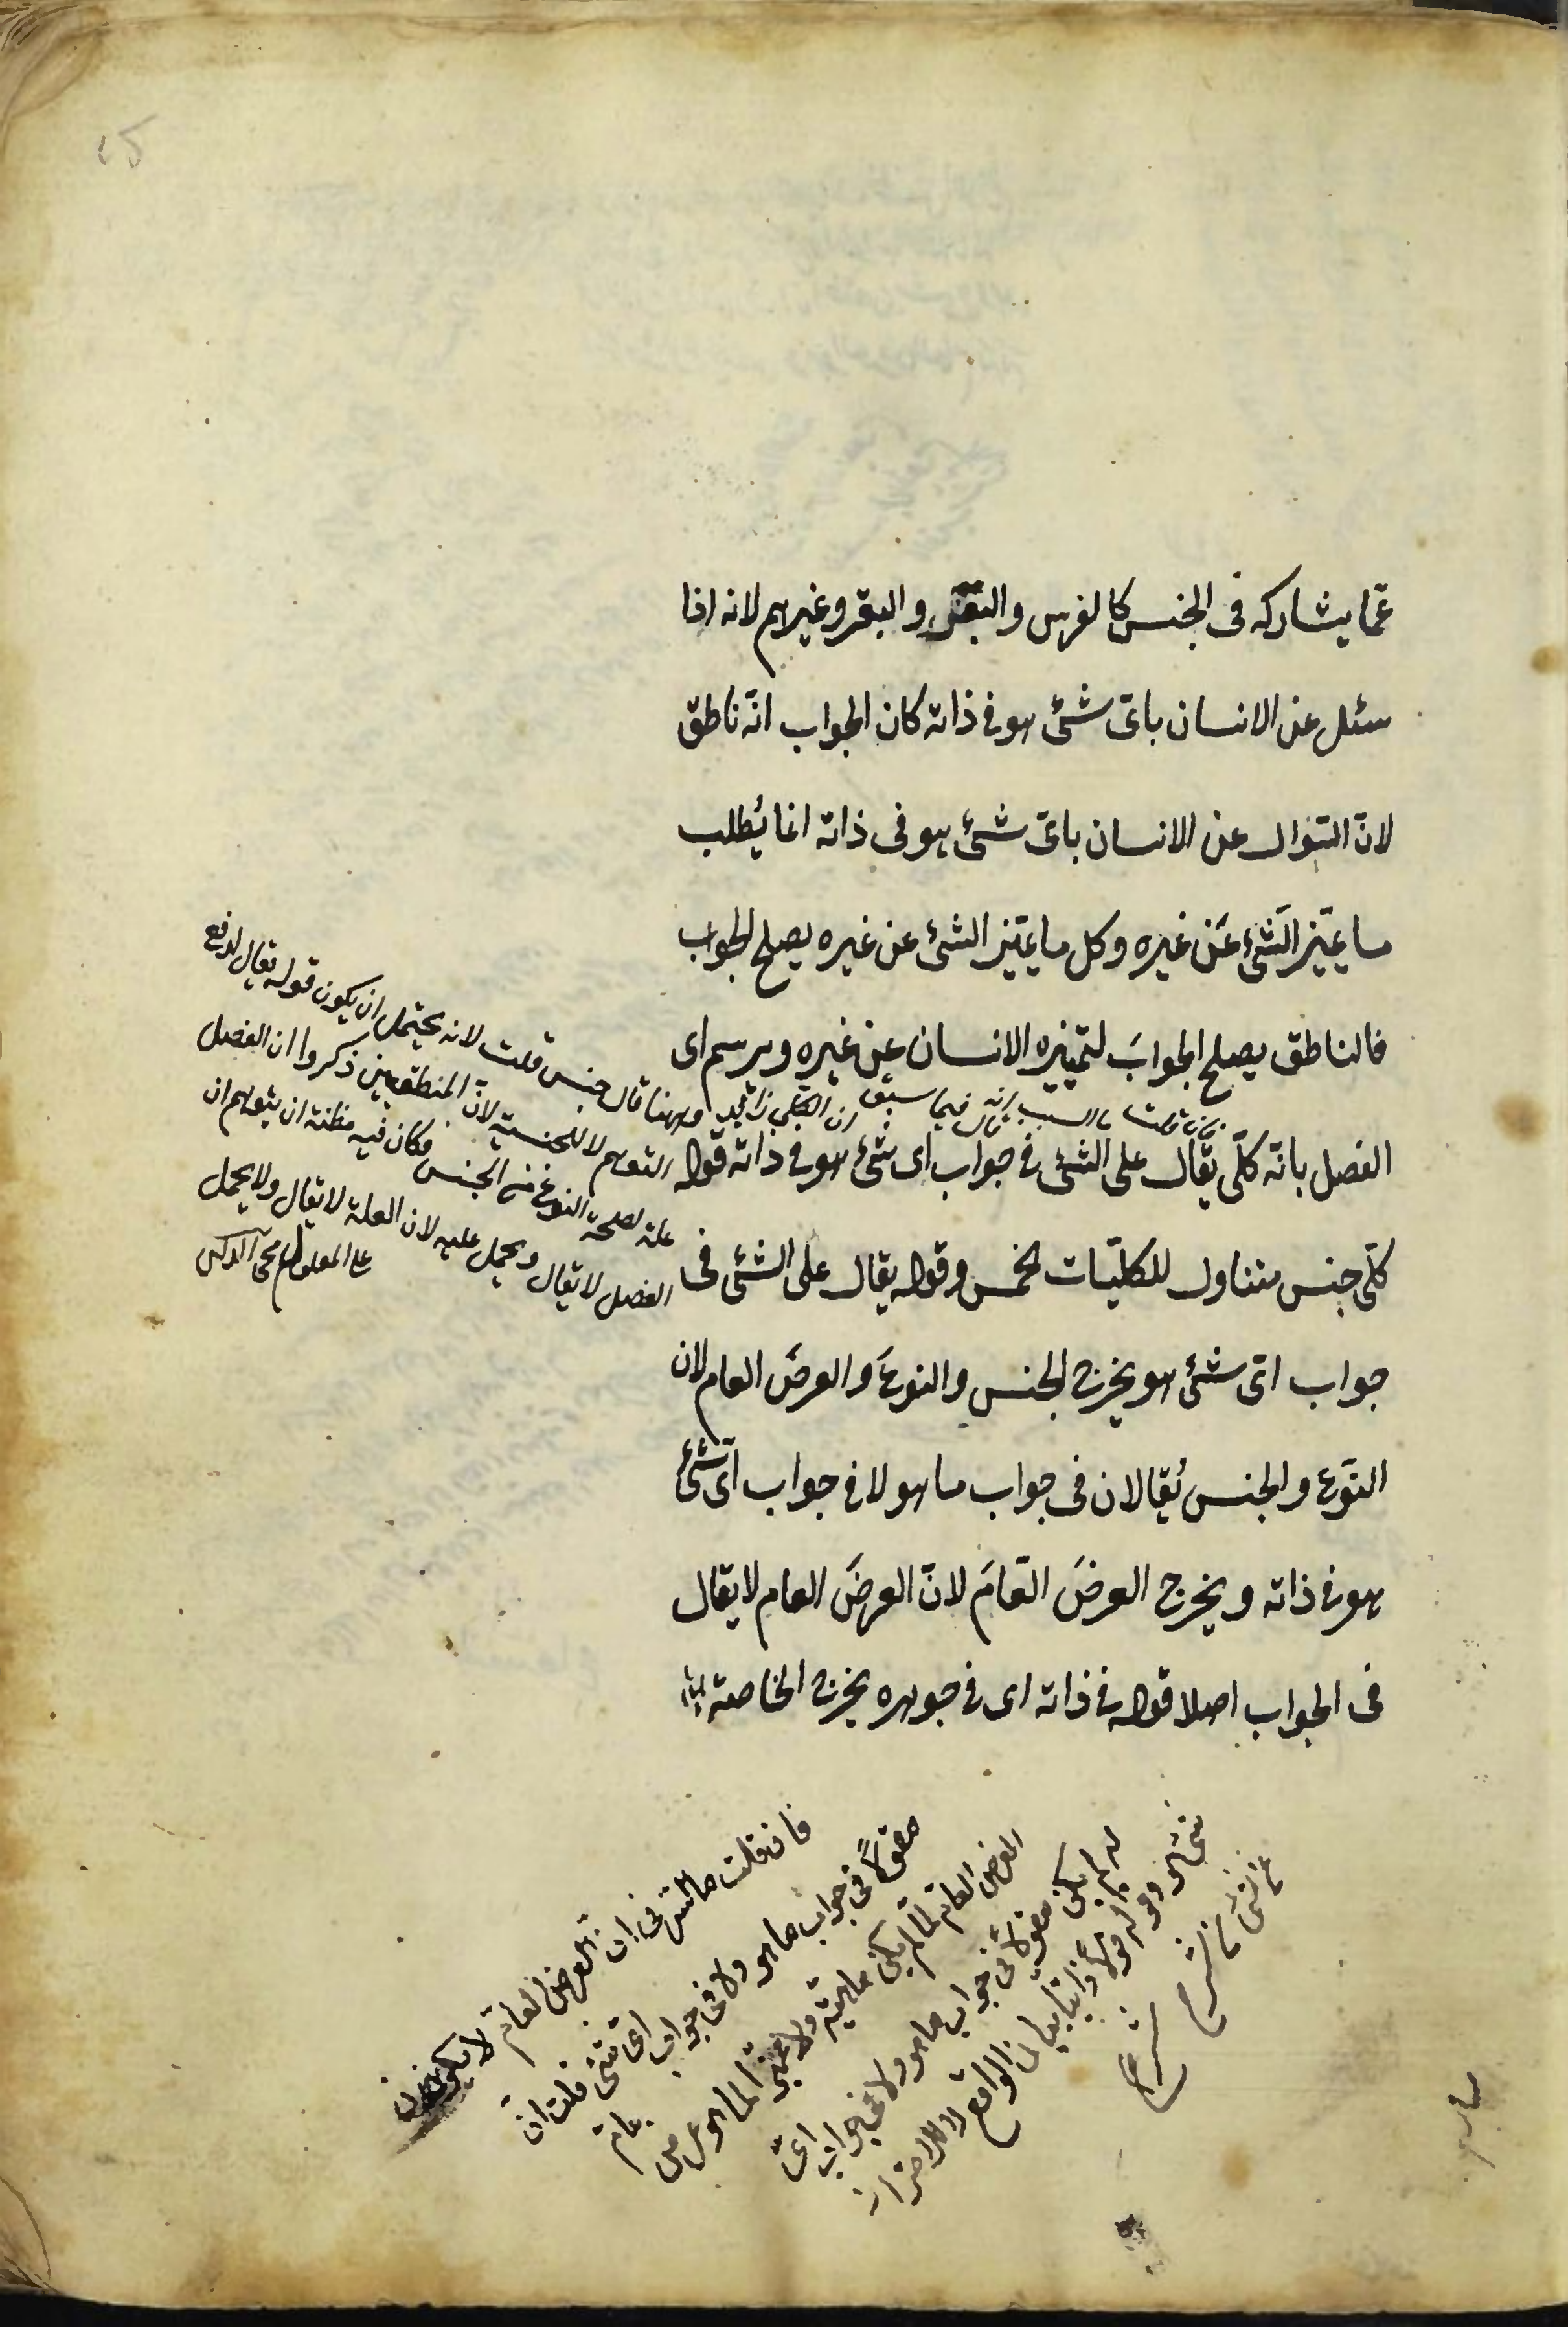 عمّا يشاركه فى الجنس كالفرس والبغل والبقر وغيرهم لانه اذا
سئل عن الانسان باىّ شئ هو فى ذاته كان الجواب انّه ناطق
لانّ السّؤال عن الانسان باىّ شئ هو فى ذاته انما يُطلب
ما يميّز الشّئ عَن غيره وكل ما يميّز الشئ عن غيره يصلح الجواب
فالناطق يصلح الجوابَ لتميّزه الانسان عن غيره ويرسم اى
الفصل بانّه كلّى يقال على الشئ فى جواب اى شئ هو فى ذاته قوله
كلّى جنس متناول للكليّات الخمس وقوله يقال على الشئ فى
جواب اىّ شئ هو يخرج الجنس والنوعَ والعرضَ العام لان
النّوع والجنس يُقالان فى جواب ما هو لا فى جواب اىّ شئ
هو فى ذاته ويخرج العرضَ العّامَ لانّ العرضَ العام لا يقال
فى الجواب اصلا قوله فى ذاته اى فى جوهره يخرج الخاصة
فان قلت ما السبب انه قال فيما سبق ان الكلى
وههنا قال جنس قلت لانه يحتمل ان يكون قوله يقال لدفع
التوهم لا للجنسية لانّ المنطقيين ذكروا ان الفصل
علة لحصة النوع من الجنس فكان فيه مظنة ان يتوهم ان
الفصل لا يقال ويحمل عليه لان العلة لا يقال ولا يحمل
على المعلول محى الدين
فان قلت ما السّر فى انّ العرض العام لا يكون
مقولاً فى جواب ما هو ولا فى جواب اى شئ قلت انّ
العرض العام لمّا لم يكن ماهيّة ولا لما هو عرض عام
له لم يكن مقولاً فى جواب ما هو ولا فى جواب اىّ
شئ هو وقوله قولاً ذاتيا بيان الواقع لا للاحتراز
شرح